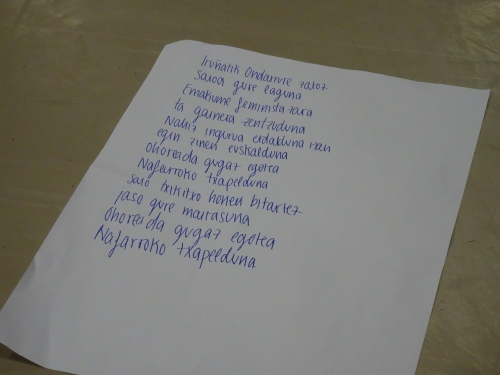 Iruñatik Ondarrure zatoz
Saroa gure laguna
Emakume feminista zara
ta gainera zentzuduna
Nahiz ingurua erdalduna izan
egin zinen euskalduna
Ohorea da gugaz egotea
Nafarroko txapelduna
saio txikitxo honen bitartez
jaso gure maitasuna
Ohorea da gugaz egotea
Nafarroko txapelduna